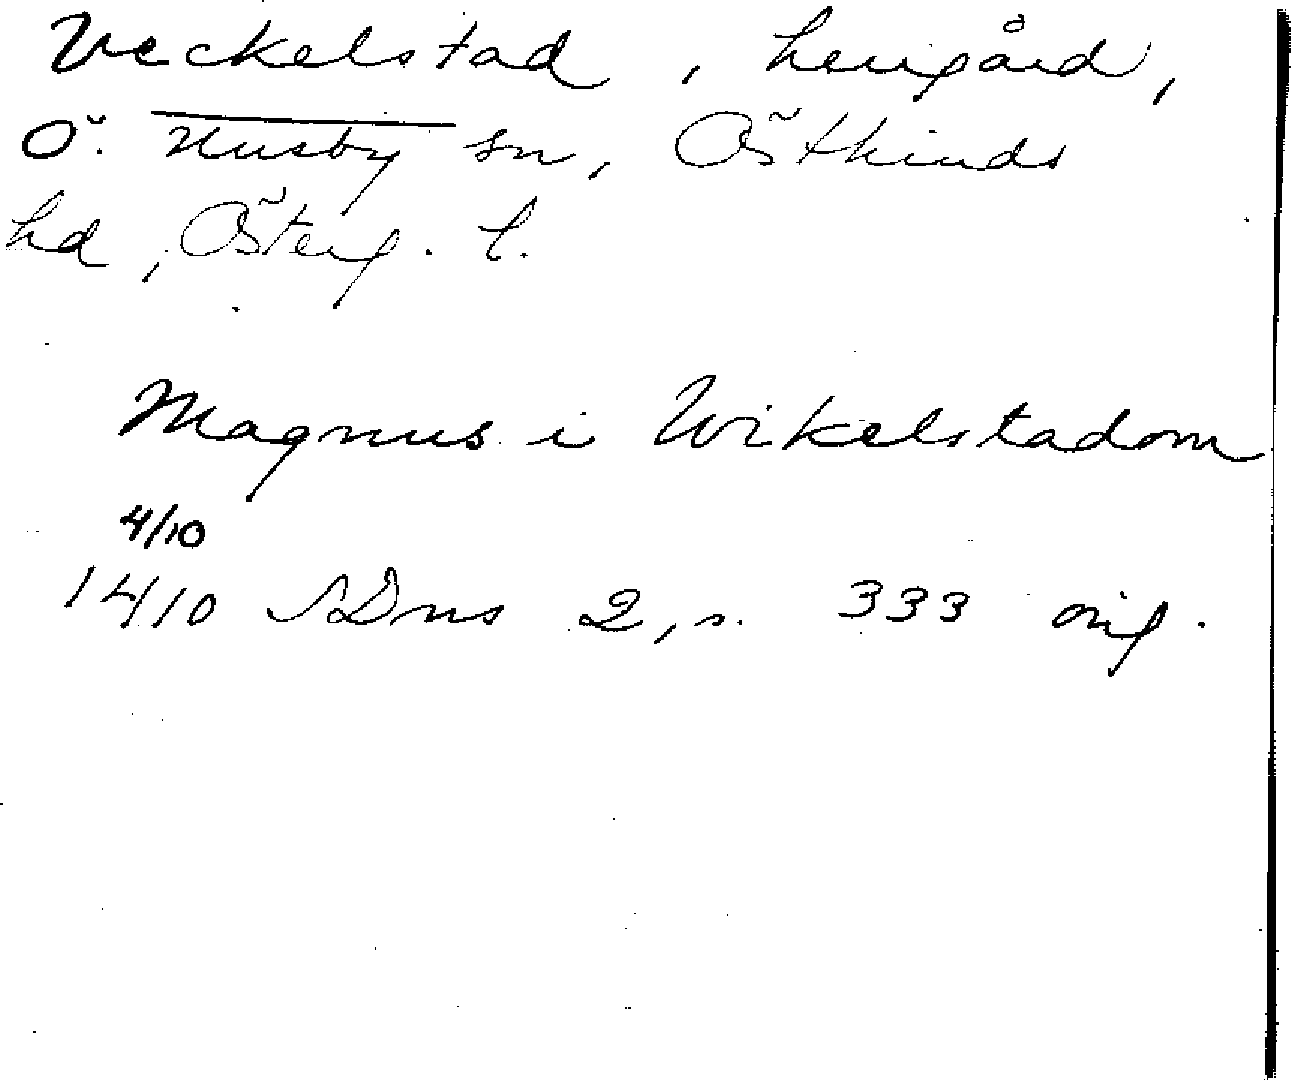 Veckelstad, herrgård,
Ö. Husby sn, Östkinds
hd, Österg. l.
Magnus i Wikelstadom
4/10
1410 SDns 2, s. 333 orig.